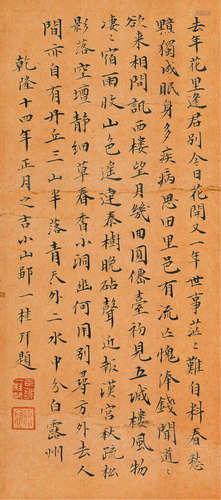 去年花里逢君别今日花開又一年世事茫〻難自料春愁
黯獨成眠身多疾病思田里邑有流亡愧俸錢聞道
欲來相問訊西樓望月幾回圓僊臺初見五城樓風物
凄〻宿雨收山色遥連秦樹晚砧聲近報漢宮秋疏松
影落空壇静細草春香小洞幽何用别尋方外去人
間亦自有丹丘三山半落青天外二水中分白露州
乾隆十四年正月之吉小山鄒一桂拜題